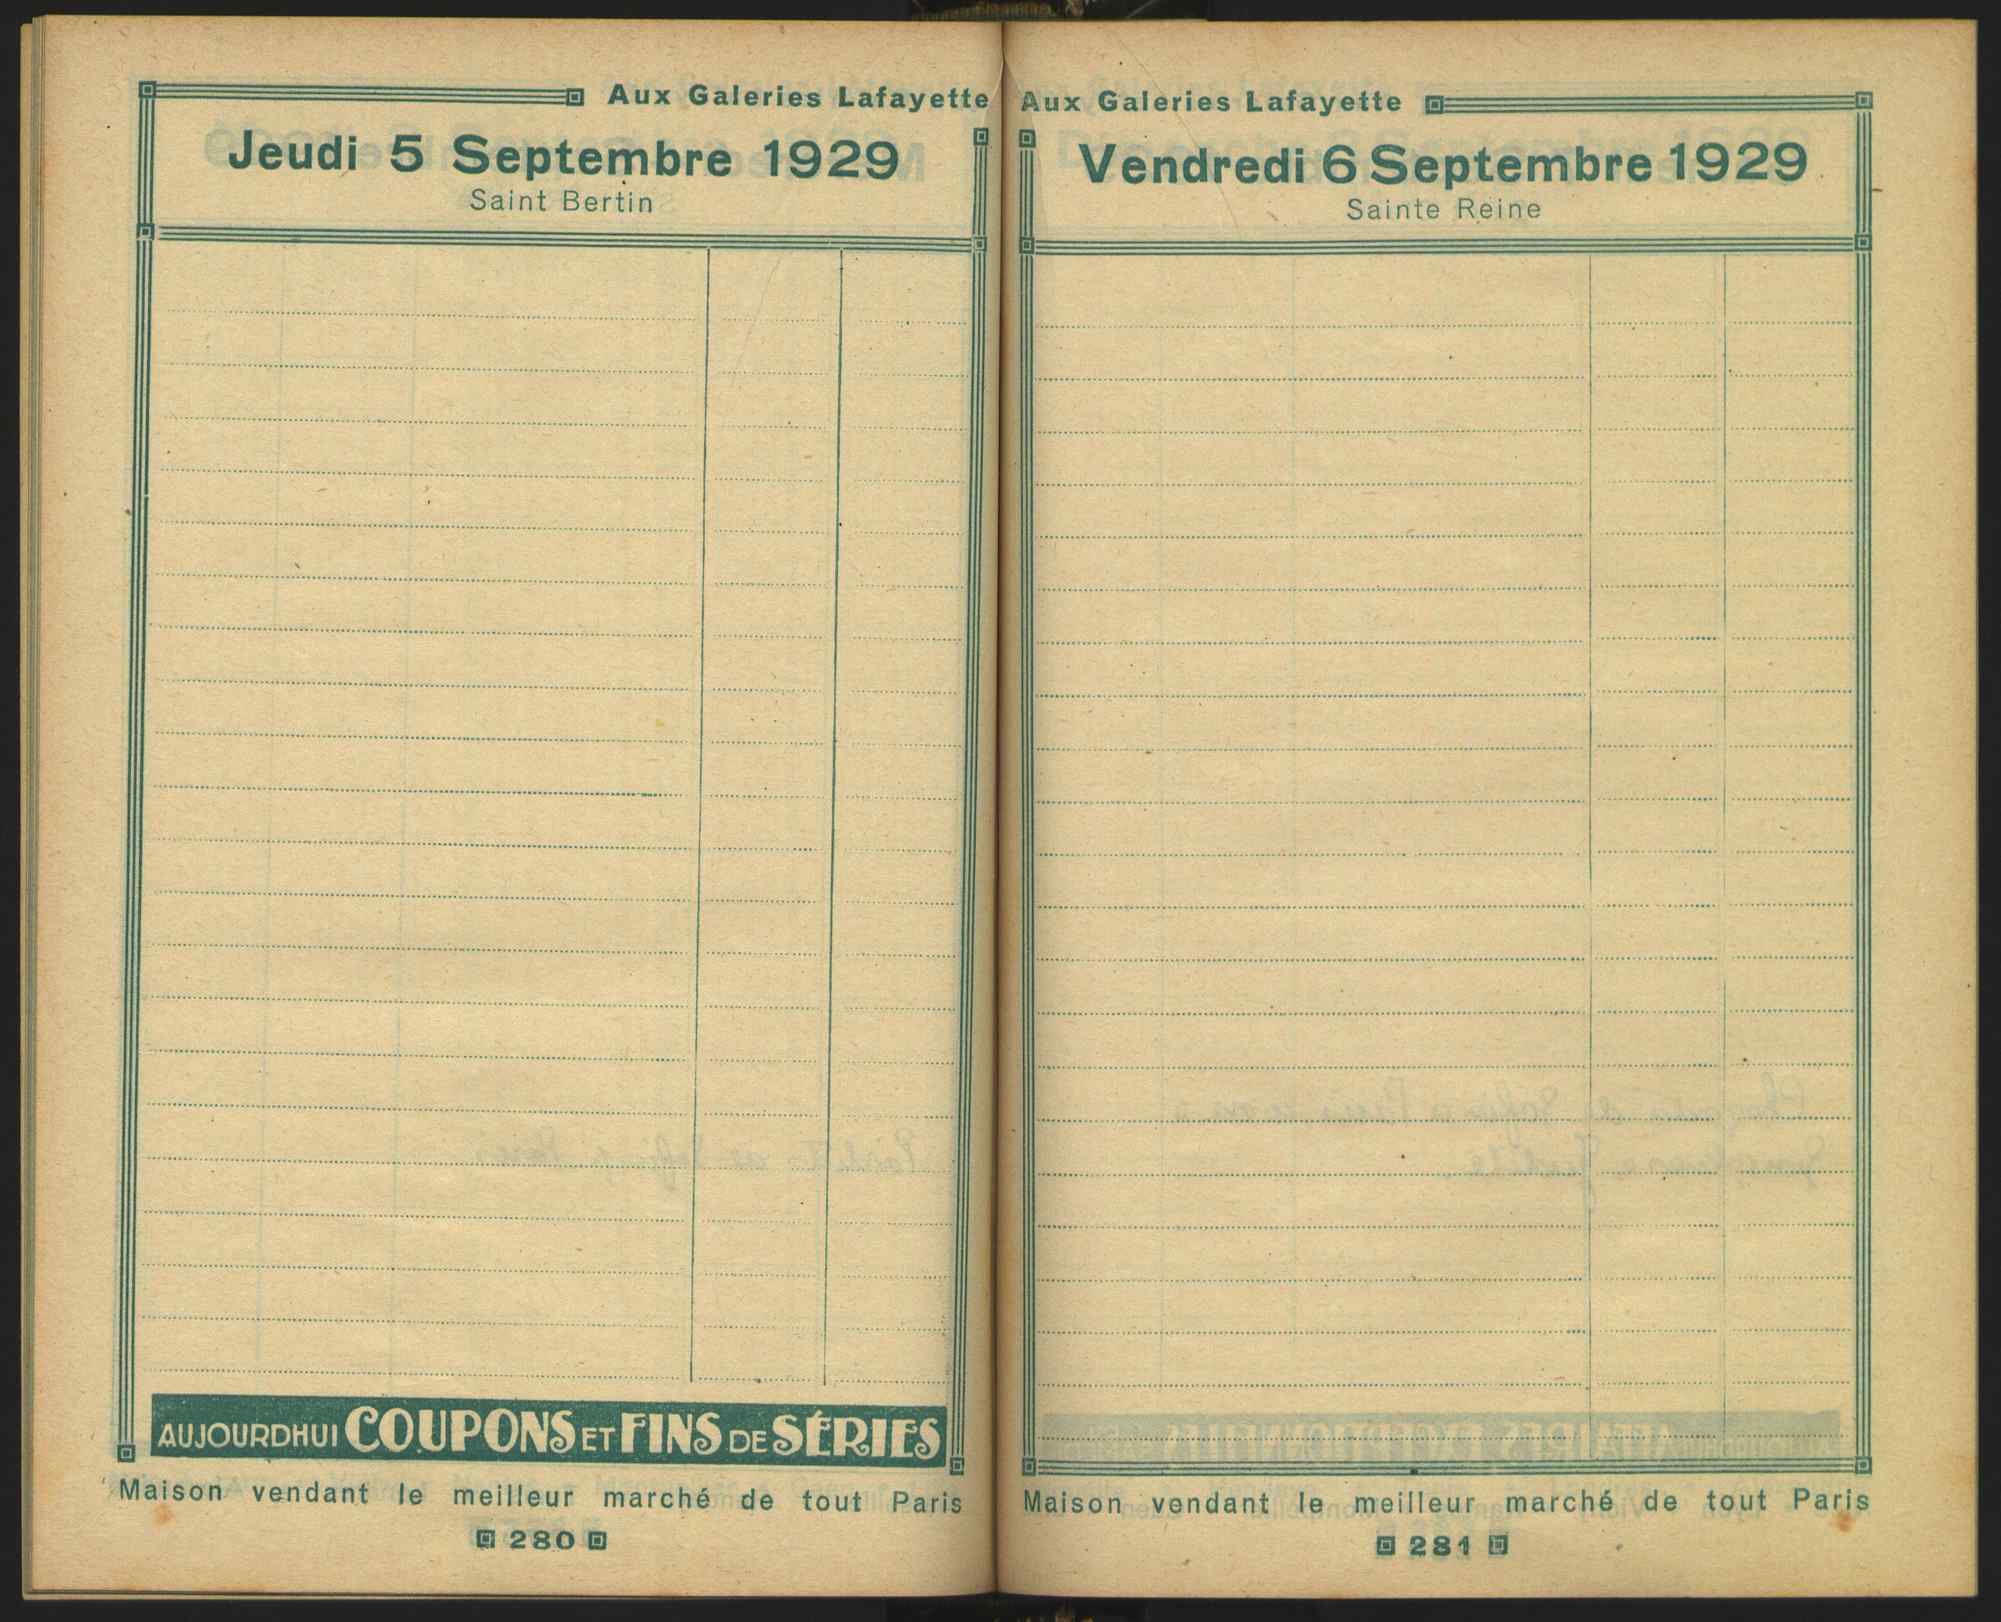 Aux Galeries Lafayette
Jeudi 5 Septembre 1929
Saint Bertin
AUJOURDHUI COUPONS ET FINS DE SÉRIES
Maison vendant le meilleur marché de tout Paris
280
Aux Galeries Lafayette
Vendredi 6 Septembre 1929
Sainte Reine
Maison vendant le meilleur marché de tout Paris
281